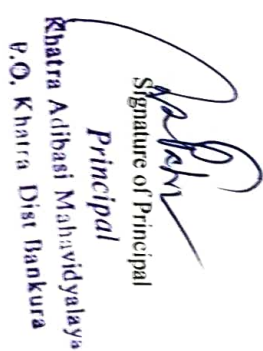 Signature of Principal
Principal
Khatra Adibasi Mahavidyalaya
P.O. Khatra Dist Bankura